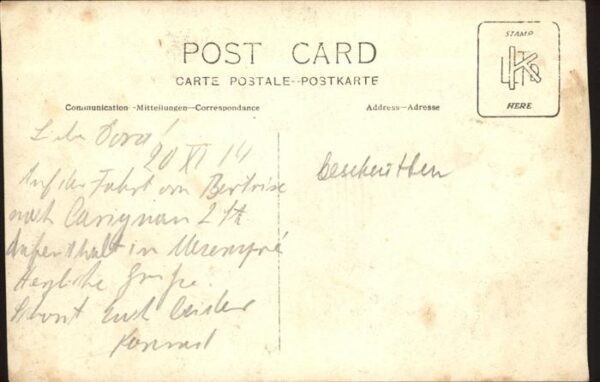 POST CARD
CARTE POSTALE--POSTKARTE
STAMP
HERE
Communication-Mitteilungen-Correspondance
Address-Adresse
Liebe Dora!
20 XI 14
Auf der Fahrt von Bertrix
nach Carignan 2 St
Aufenthalt in Messempré
Herzliche Grüße.
Schont Euch beide
Konrad